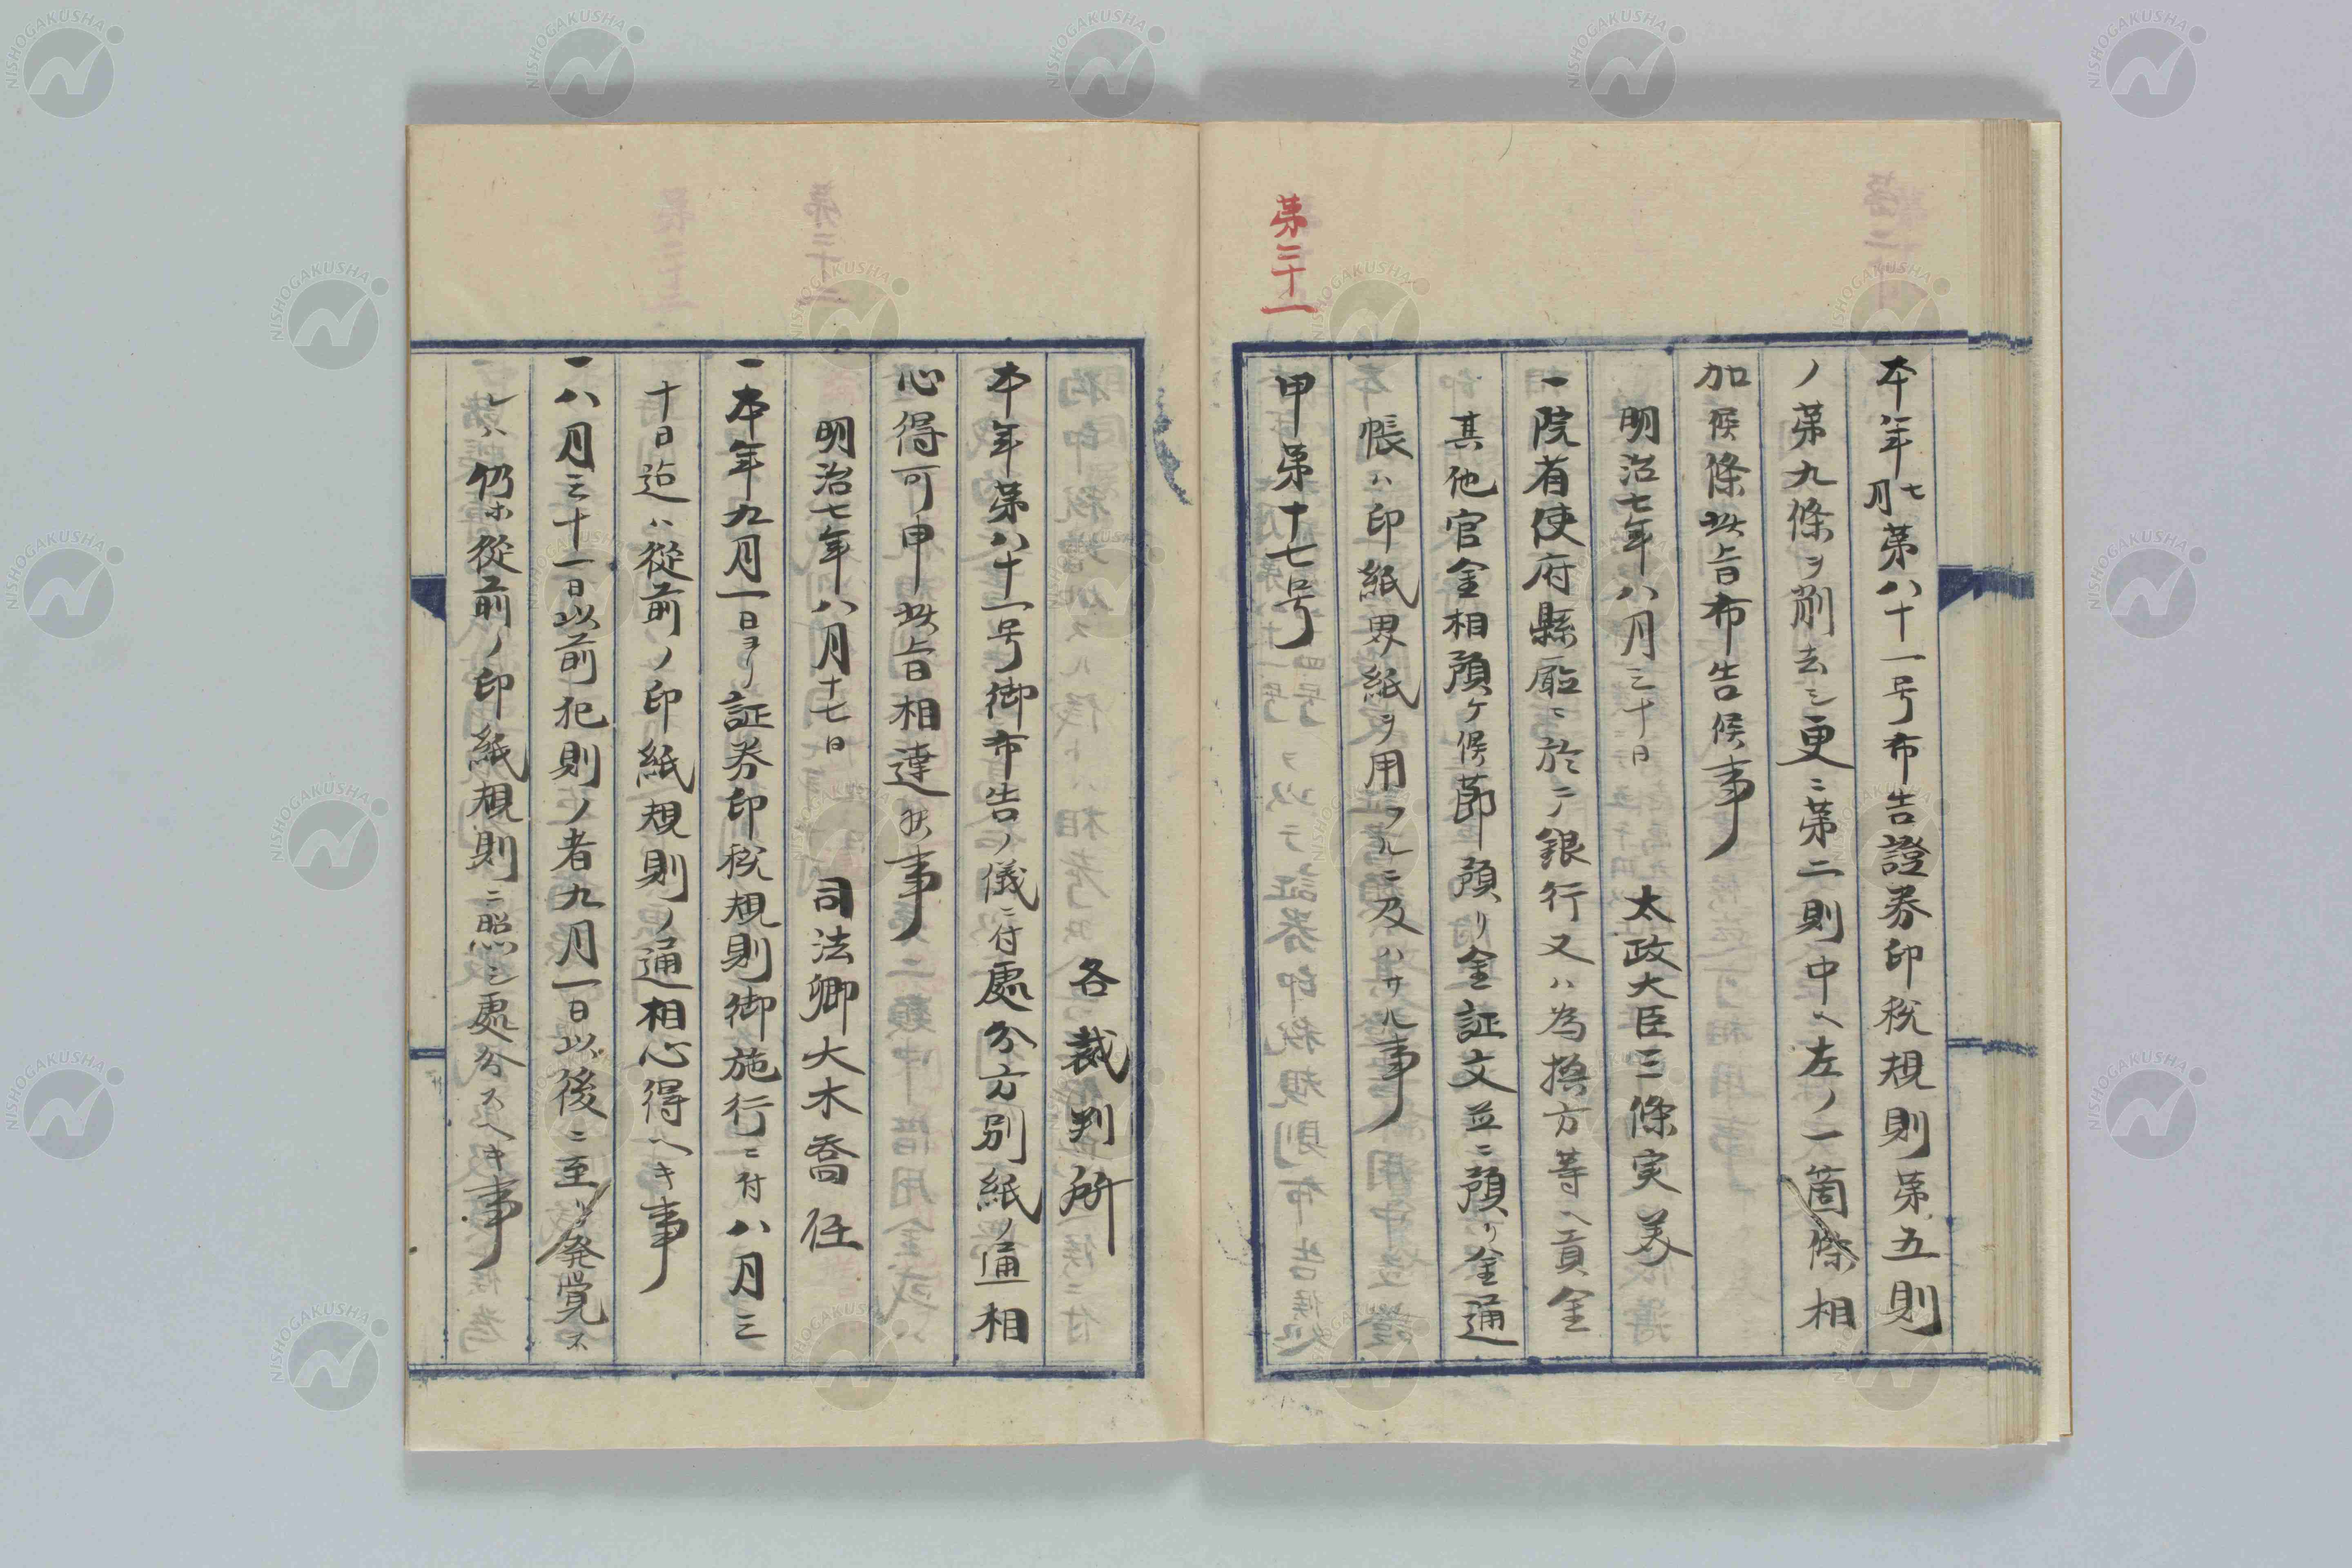 本年七月第八十一号布告證券印税規則第五則
ノ第九條ヲ削去シ更ニ第二則中ヘ左ノ一箇條相
加候條此旨布告候事
明治七年八月三十日 太政大臣三條実美
一院省使府縣廳ニ於テ銀行又ハ為換方等ヘ貢金
其他官金相預ケ候節預リ金証文並ニ預リ金通
帳ハ印紙界紙ヲ用フルニ及ハサル事
第三十一
甲第十七号
各裁判所
本年第八十一号御布告ノ儀ニ付處分方別紙ノ通相
心得可申此旨相達候事
明治七年八月十七日 司法卿大木喬任
一本年九月一日ヨリ証券印税規則御施行ニ付八月三
十日迠ハ從前ノ印紙規則ノ通相心得ヘキ事
一八月三十一日以前犯則ノ者九月一日以後ニ至リ発覚ス
レハ仍ホ從前ノ印紙規則ニ照シ處分スヘキ事
NISHOGAKUSHA